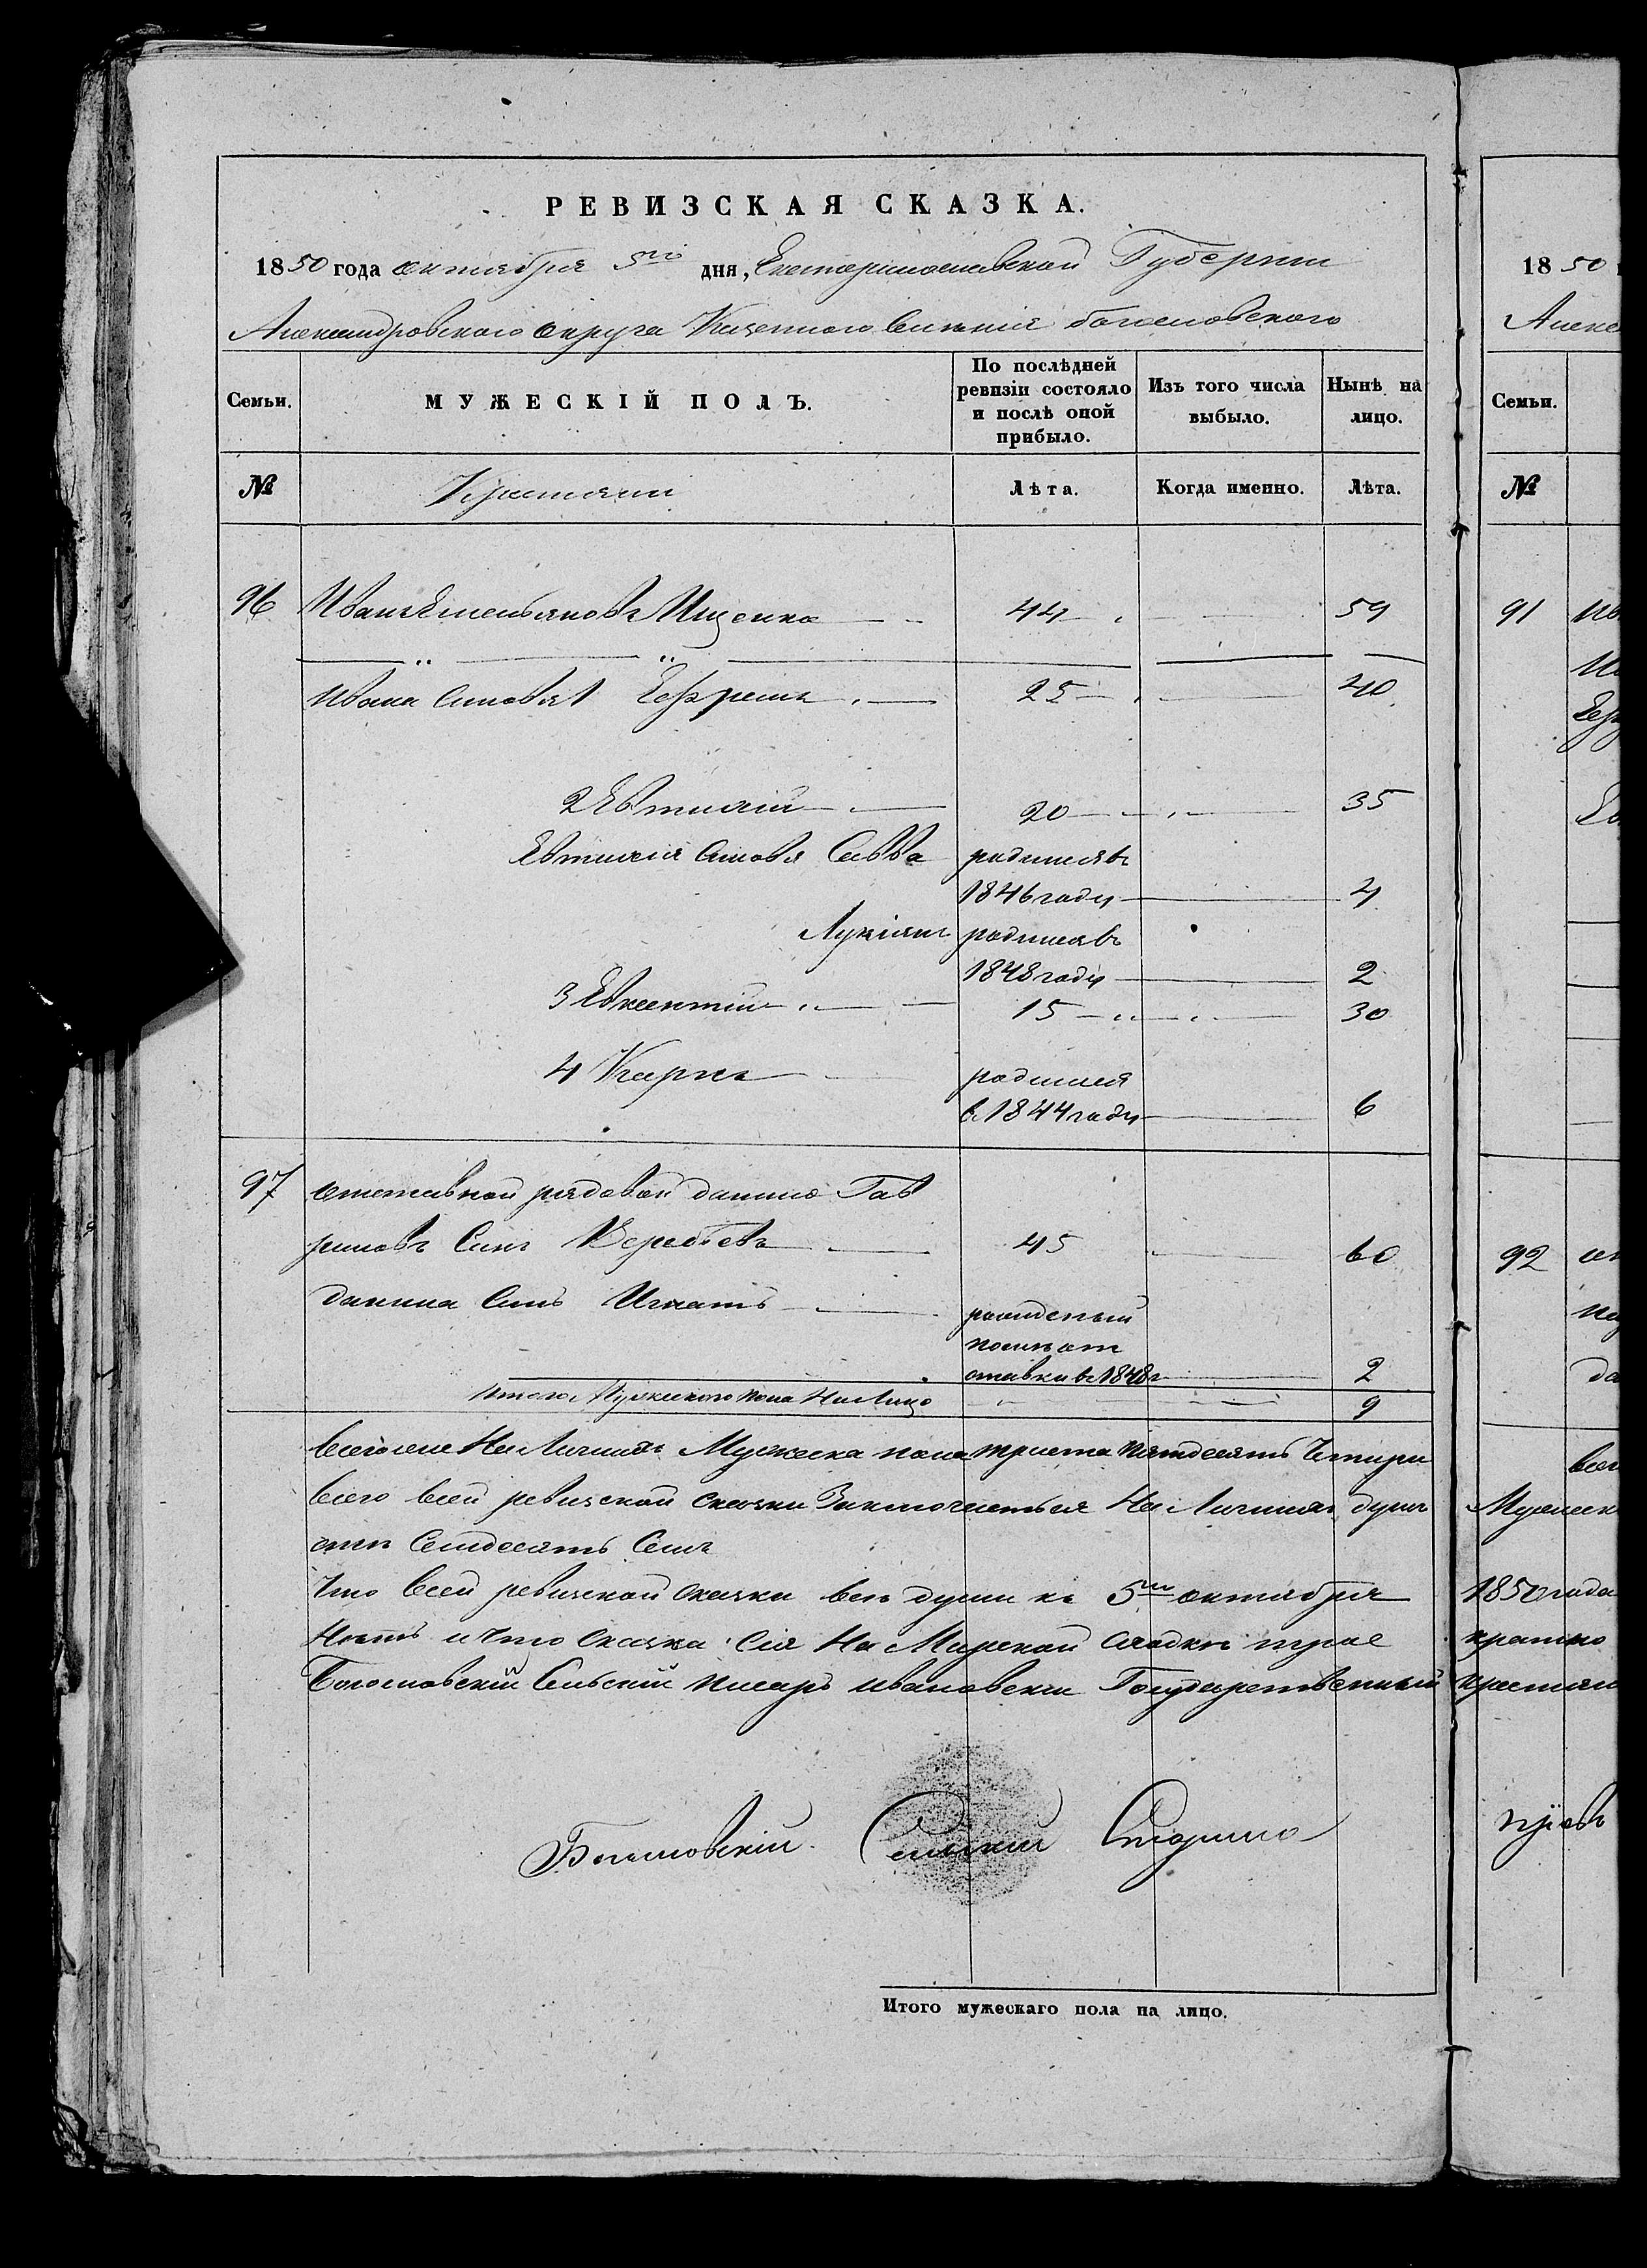 РЕВИЗСКАЯ СКАЗКА.
1850 года октября 5го дня, Екатеринославской Губернии
Александровского округа Казенного Селенія богословского
Семьи.
МУЖЕСКІЙ ПОЛЪ.
По послѣдней ревизіи состояло и послѣ оной прибыло.
Изъ того числа выбыло.
Нынѣ на лицо.
№ Крестяни Лѣта. Когда именно. Лѣта.
96 Иванъ Емельяновъ Ищенко 44 59
Ивана Сыновья 1 Ефремъ 25 40
2 Евтихій 20 35
Евтихія Сыновья Савва родился въ
1846 году 4
Лукіянъ родился въ
1848 году 2
3 15 30
4 Карпъ родился
въ 1844 году 6
97 отставной рядовой данило Гав
риловъ Сынъ 45 60
данила Сынъ Игнатъ рожденный
послѣ от
ставки въ 1848 г 2
Итого Мужеского пола На Лицо 9
Всего На Мужеска пола триста пятдесятъ Чтири
Всего Всей ревизской сказки Заключаеться На душъ
Семдесятъ Семъ
Что Всей ревизской сказки всѣ души къ 5го октября
и Что Сказка Сія На Мирской Сходкѣ трое
Богословскій Сельскій писарь Ивановскій Государственный
Богословскій Сельскій Старшина
Итого мужескаго пола на лицо.
1850
Алекса
Семьи.
№
91
92
Мужеск
1850 года
кратно
крестян